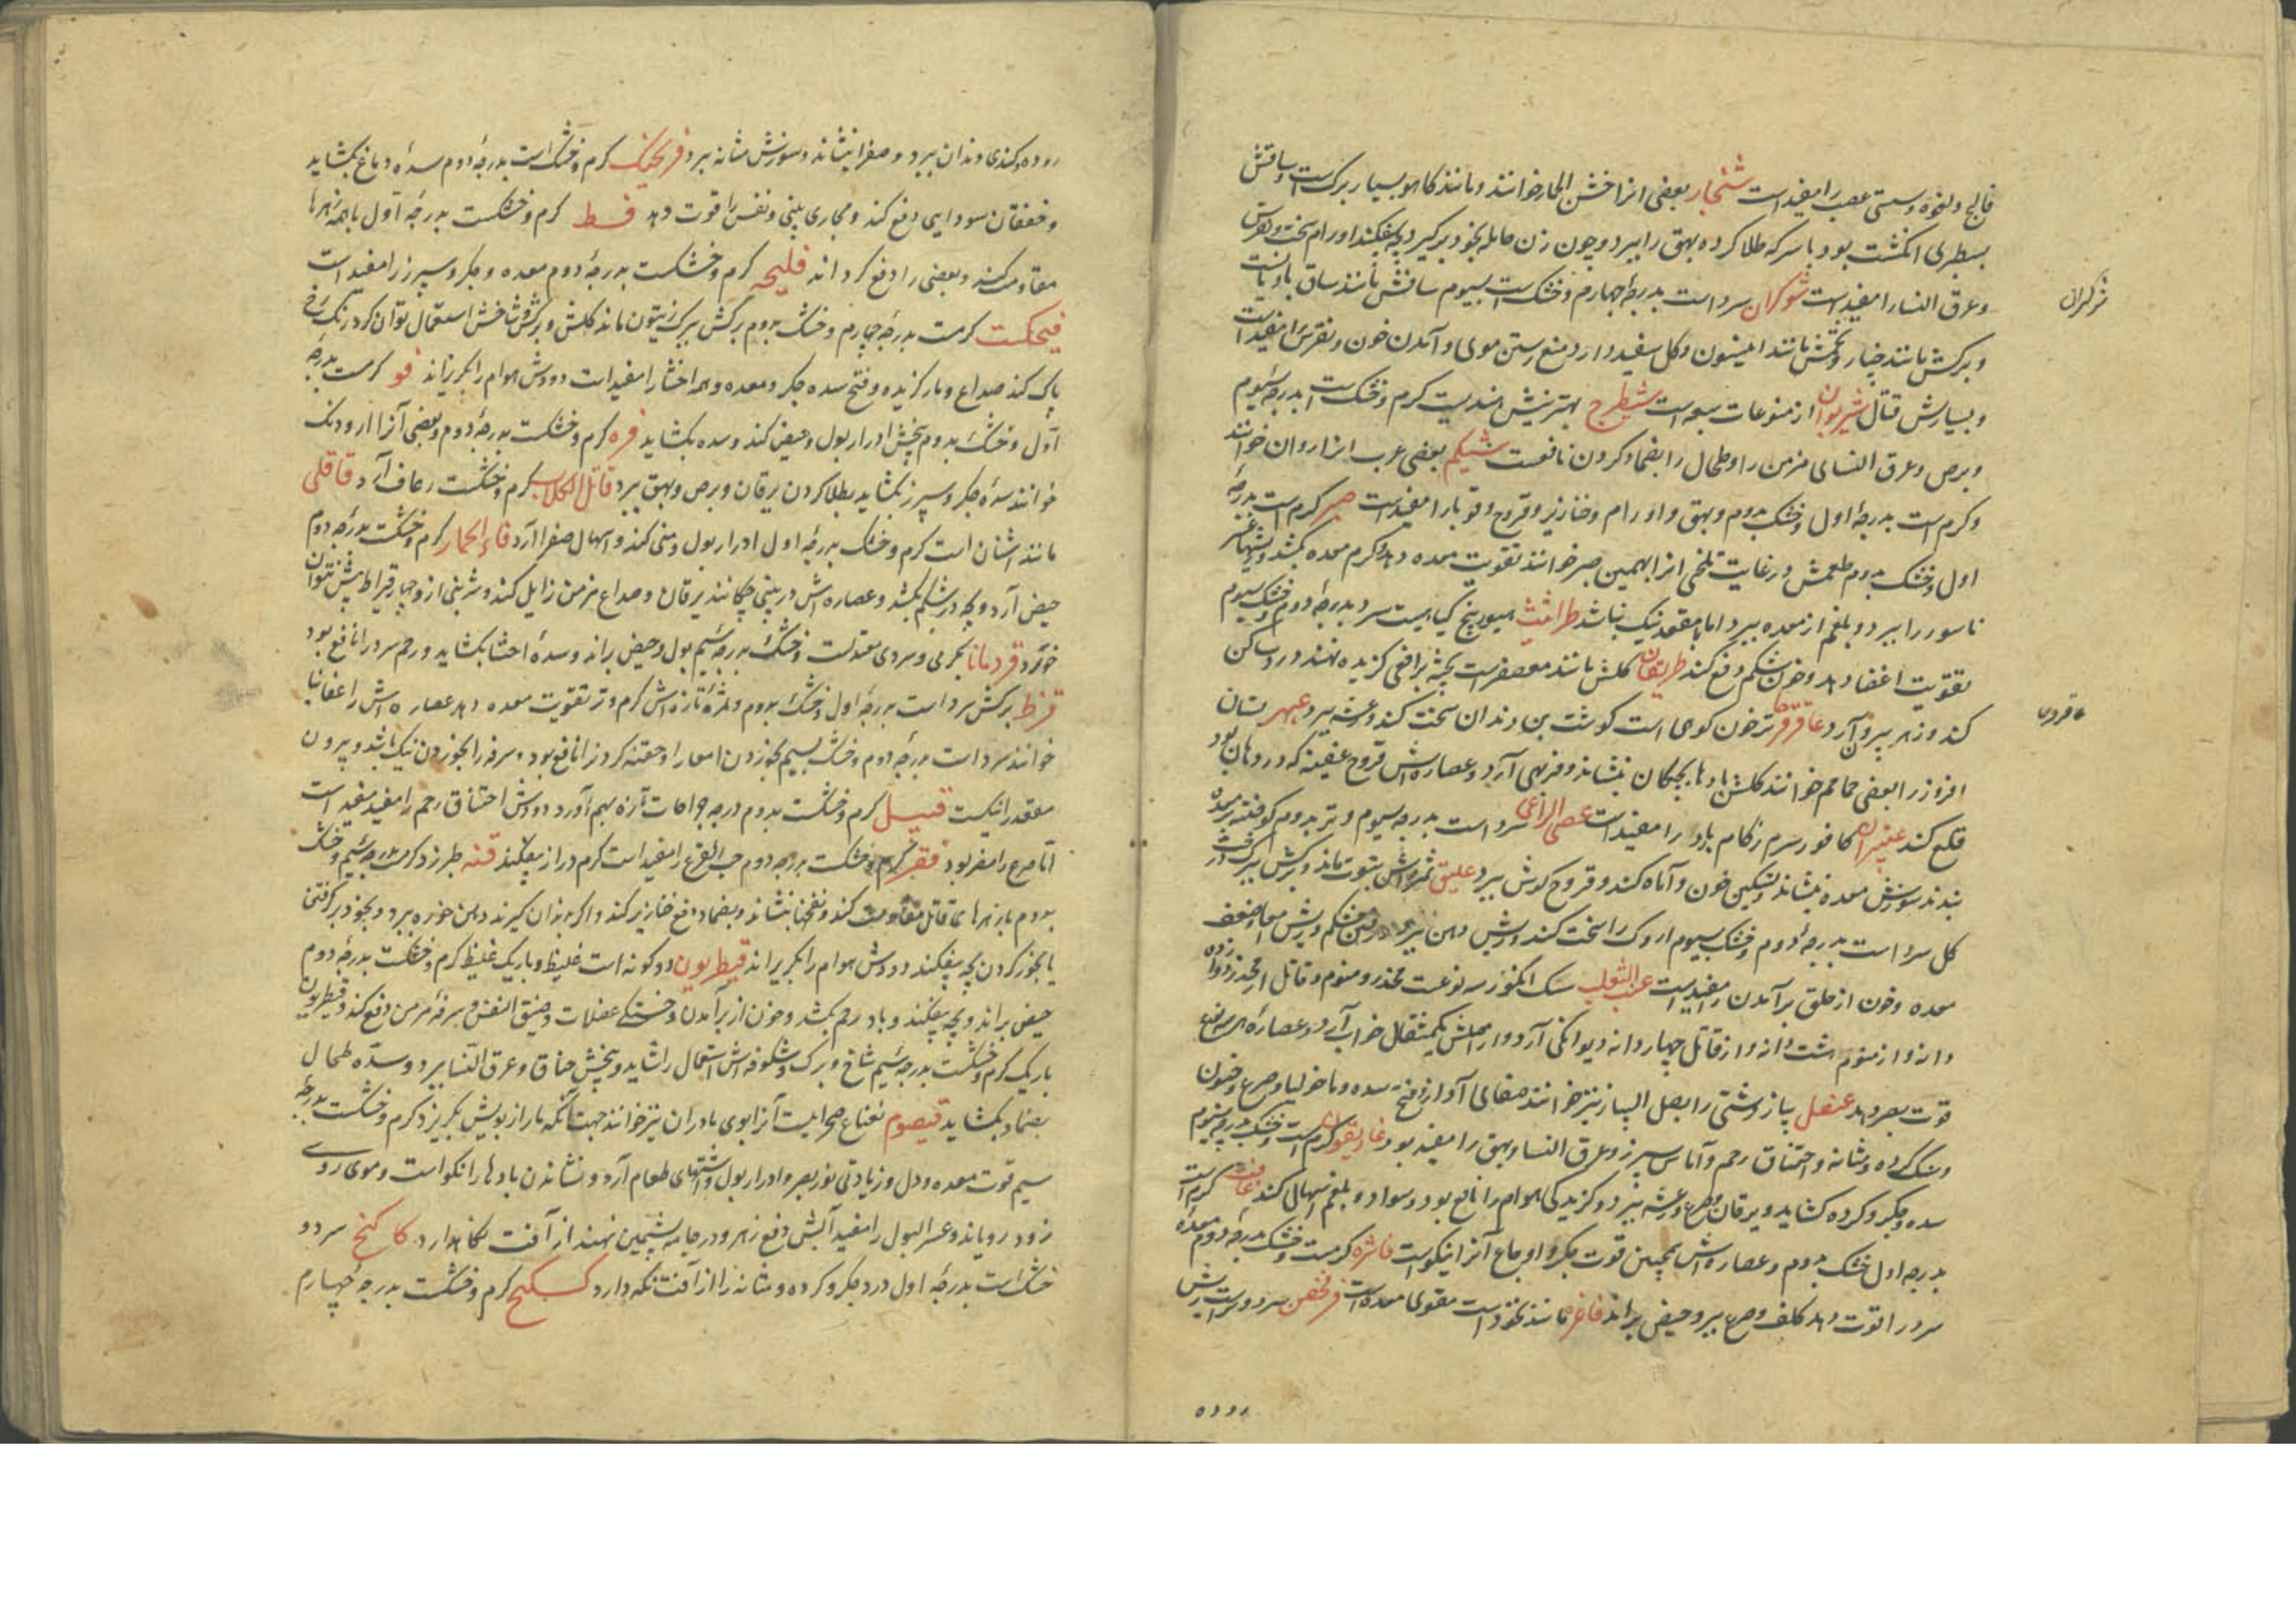 فالج و لقوه و سستی عصب را مفیداست شنجار بعضی انرا خش الحمار خوانند و مانند کاهو بسیار برک است و ساقش
بسطبری انکشت بود با سرکه طلا کرده بهق را ببرد و چون زن حامله بخود برکیرد بچه بیفکند اورام سخت و نقرس
شوکران
و عرق النسا را مفیدست شوکران سرداست بدرجهٔ چهارم و خشک است بسیوم ساقش مانند ساق بادیانست
و برکش مانند خیار و تخمش مانند انیسون و کل سفید دارد منع رستن موی و آمدن خون و نقرس را مفیداست
و بسیارش قتال از منوعات سبعه است شیطرج بهترینش هندیست کرم و خشک است بدرجهٔ سیوم
و برص و عرق النسای مزمن را و طحال را بضماد کردن نافعست بعضی عرب انرا روان خوانند
و کرم است بدرجهٔ اول و خشک بدوم و بهق و اورام و خنازیر و قروح و قوبا را مفیداست صبر کرم است بدرجهٔ
اول و خشک بدوم طعمش در غایت تلخی انرا بهمین صبر خوانند تقوت معده دهد و کرم معده بکشد
ناسور را ببرد و بلغم از معده ببرد اما با مقعد نیک نباشد طراثیث بیخ کیاهیست سرد بدرجهٔ دوم و خشک بسیوم
تقویت اعضا دهد و خون شکم دفع کند کلش مانند معصفرست بر افعی کزیده نهند درد ساکن
عاقرقرحا
کند و زهر بیرون آرد عاقرقرحا ترخون کوهی است کوشت بن دندان سخت کند و رعشه ببرد عبهر بستان
افروز را بعضی حماحم خوانند کلش بادها بچکان بنشاند و فربهی آرد و عصاره‌اش قروح عفینه که در دهان بود
قلع کند عنبران کافور سرم زکام بارد را مفیداست عصی الراعی سرد است بدرجه سیوم و تر بدوم کوفته برمعده
نبدند سوزش معده بنشاند و تسکین خون و آماه کند و قروح کوش ببرد علیق ثمره‌اش بتوت ماند و برکش ببرک درخت
کل سرد است بدرجهٔ دوم و خشک بسیوم اروک را سخت کند و ریش دهن ببرد و ریش معا و ضعف
معده و خون از حلق بر آمدن را مفیداست عنب الثعلب سک انکور سه نوعست مخدر و منوم و قاتل از مخدر دوازده
دانه و از منوم هشت دانه و از قاتل چهار دانه دیوانکی آرد و از اصلش یکمثقال خواب آرد و عصارهٔ هر سه نوع
قوت بصر دهد عنصل پیاز دشتی را بصل البیاز نیز خوانند صفای آواز و فتح سده و ماخولیا و صرع و جنون
و سنک کرده و مثانه و اختناق رحم و آماس سپرز و عرق النسا و بهق را مفید بود غاریقون کرم است و خشک بدرجه سیوم
سده جکر و کرده کشاید و یرقان و صرع و رعشه ببرد و کزیدکی هوام را نافع بود و سودا و بلغم اسهال کند غافث کرم است
بدرجه اول خشک بدوم و عصاره‌اش همچنین قوت جکر و اوجاع آنرا نیکوست فاشره کرمست و خشک بدرجهٔ دوم معده
سرد را قوت دهد کلف و صرع ببرد و حیض براند فاغره مانند نخود است مقوی معده است فرفخین سرد و تر است ریش
روده
روده و کندی دندان ببرد و صفرا بنشاند و سوزش مثانه ببرد فرنجمشک کرم و خشک است بدرجهٔ دوم سدهٔ دماغ بکشاید
و خفقان سودایی دفع کند و مجاری بینی و نفس را قوت دهد کرم و خشکست بدرجهٔ اول با همه زهرها
مقاومت کند و بعضی را دفع کرداند فلیجه کرم و خشکست بدرجهٔ دوم معده و جکر و سپرز را مفیداست
فنجنکشت کرمست بدرجهٔ چهارم و خشک بدوم برکش ببرک زیتون ماند کلش و برکش و شاخش استعمال توان کرد رنک رخ
پاک کند صداع و مار کزیده و فتح سده جکر و معده و همه احشا را مفیداست دودش هوام را بکریزاند فو کرمست بدرجهٔ
اول و خشک بدوم بیخش ادرار بول و حیض کند و سده بکشاید فوه کرم و خشکست بدرجهٔ دوم و بعضی آنرا رودنک
خوانند سدهٔ جکر و سپرز بکشاید بطلا کردن یرقان و برص و بهق ببرد قاتل الکلاب کرم و خشکست رعاف آرد قاقلی
مانند اشنان است کرم و خشک بدرجهٔ اول ادرار بول و منی کند و اسهال صفرا آرد قثاء الحمار کرم و خشکست بدرجهٔ دوم
حیض آرد و بچه در شکم بکشد و عصاره‌اش در بینی چکانند یرقان و صداع مزمن زایل کند و شربتی از و چهار قیراط بیش نتوان
خورد قردمانا بکرمی و سردی معتدلست و خشک بدرجه سیم بول و حیض براند و سدهٔ احشا بکشاید و رحم سرد را نافع بود
قرظ برکش سرد است بدرجهٔ اول و خشک بدوم و ثمرهٔ تازه‌اش کرم و تر تقویت معده دهد عصاره‌اش را اقاقیا
خوانند سرد است بدرجه دوم و خشک بسیم بخوردن امعا را و حقنه کردن را نافع بود سرفه را بخوردن نیک باشد و بیرون
مقعد را نیکست قنبیل کرم و خشکست بدوم درجه جراحات تازه بهم آورد دودش اختناق رحم را مفید مفید است
اما صرع را مضر بود قفر کرم و خشکست بدرجه دوم حب القرع را مفید است کرم دراز بیفکند قنه طبرزد کرمست بدرجه سیم و خشک
بدوم با زهرهای قاتل مقاومت کند و نفخها بنشاند و بضماد دفع خنازیر کند و اکر بدان کیرند دهن خوره ببرد و بخود برکرفتن
یا بخور کردن بچه بیفکند و دودش هوام را بکریزاند قنطریون دو کونه است غلیظ و باریک غلیظ کرم و خشکست بدرجهٔ دوم
حیض براند و بچه بیفکند و باد رحم بکشد و خون از بر آمدن و خستکی عضلات و ضیق النفس و سرفهٔ مزمن دفع کند و قنطریون
باریک کرم و خشکست بدرجه سیم شاخ و برک و شکوفه‌اش استعمال را شاید و بیخش خناق و عرق النسا ببرد و سدهٔ طحال
بضماد بکشاید قیصوم نعناع صحراییست آنرا بوی مادران نیز خوانند جهت آنکه مار از بویش بکریزد کرم و خشکست بدرجهٔ
سیم قوت معده و دل و زیادتی نور بصر و ادرار بول و اشتهای طعام آرد و نشاندن بادها را نکو است و موی روی
زود رویاند و عسر البول را مفید آبش دفع زهر و در جامه پشمین نهند از آفت نکاهدارد کاکنج سرد و
خشک است بدرجهٔ اول درد جکر و کرده و مثانه را از آفت نکه دارد کرم و خشکست بدرجهٔ چهارم